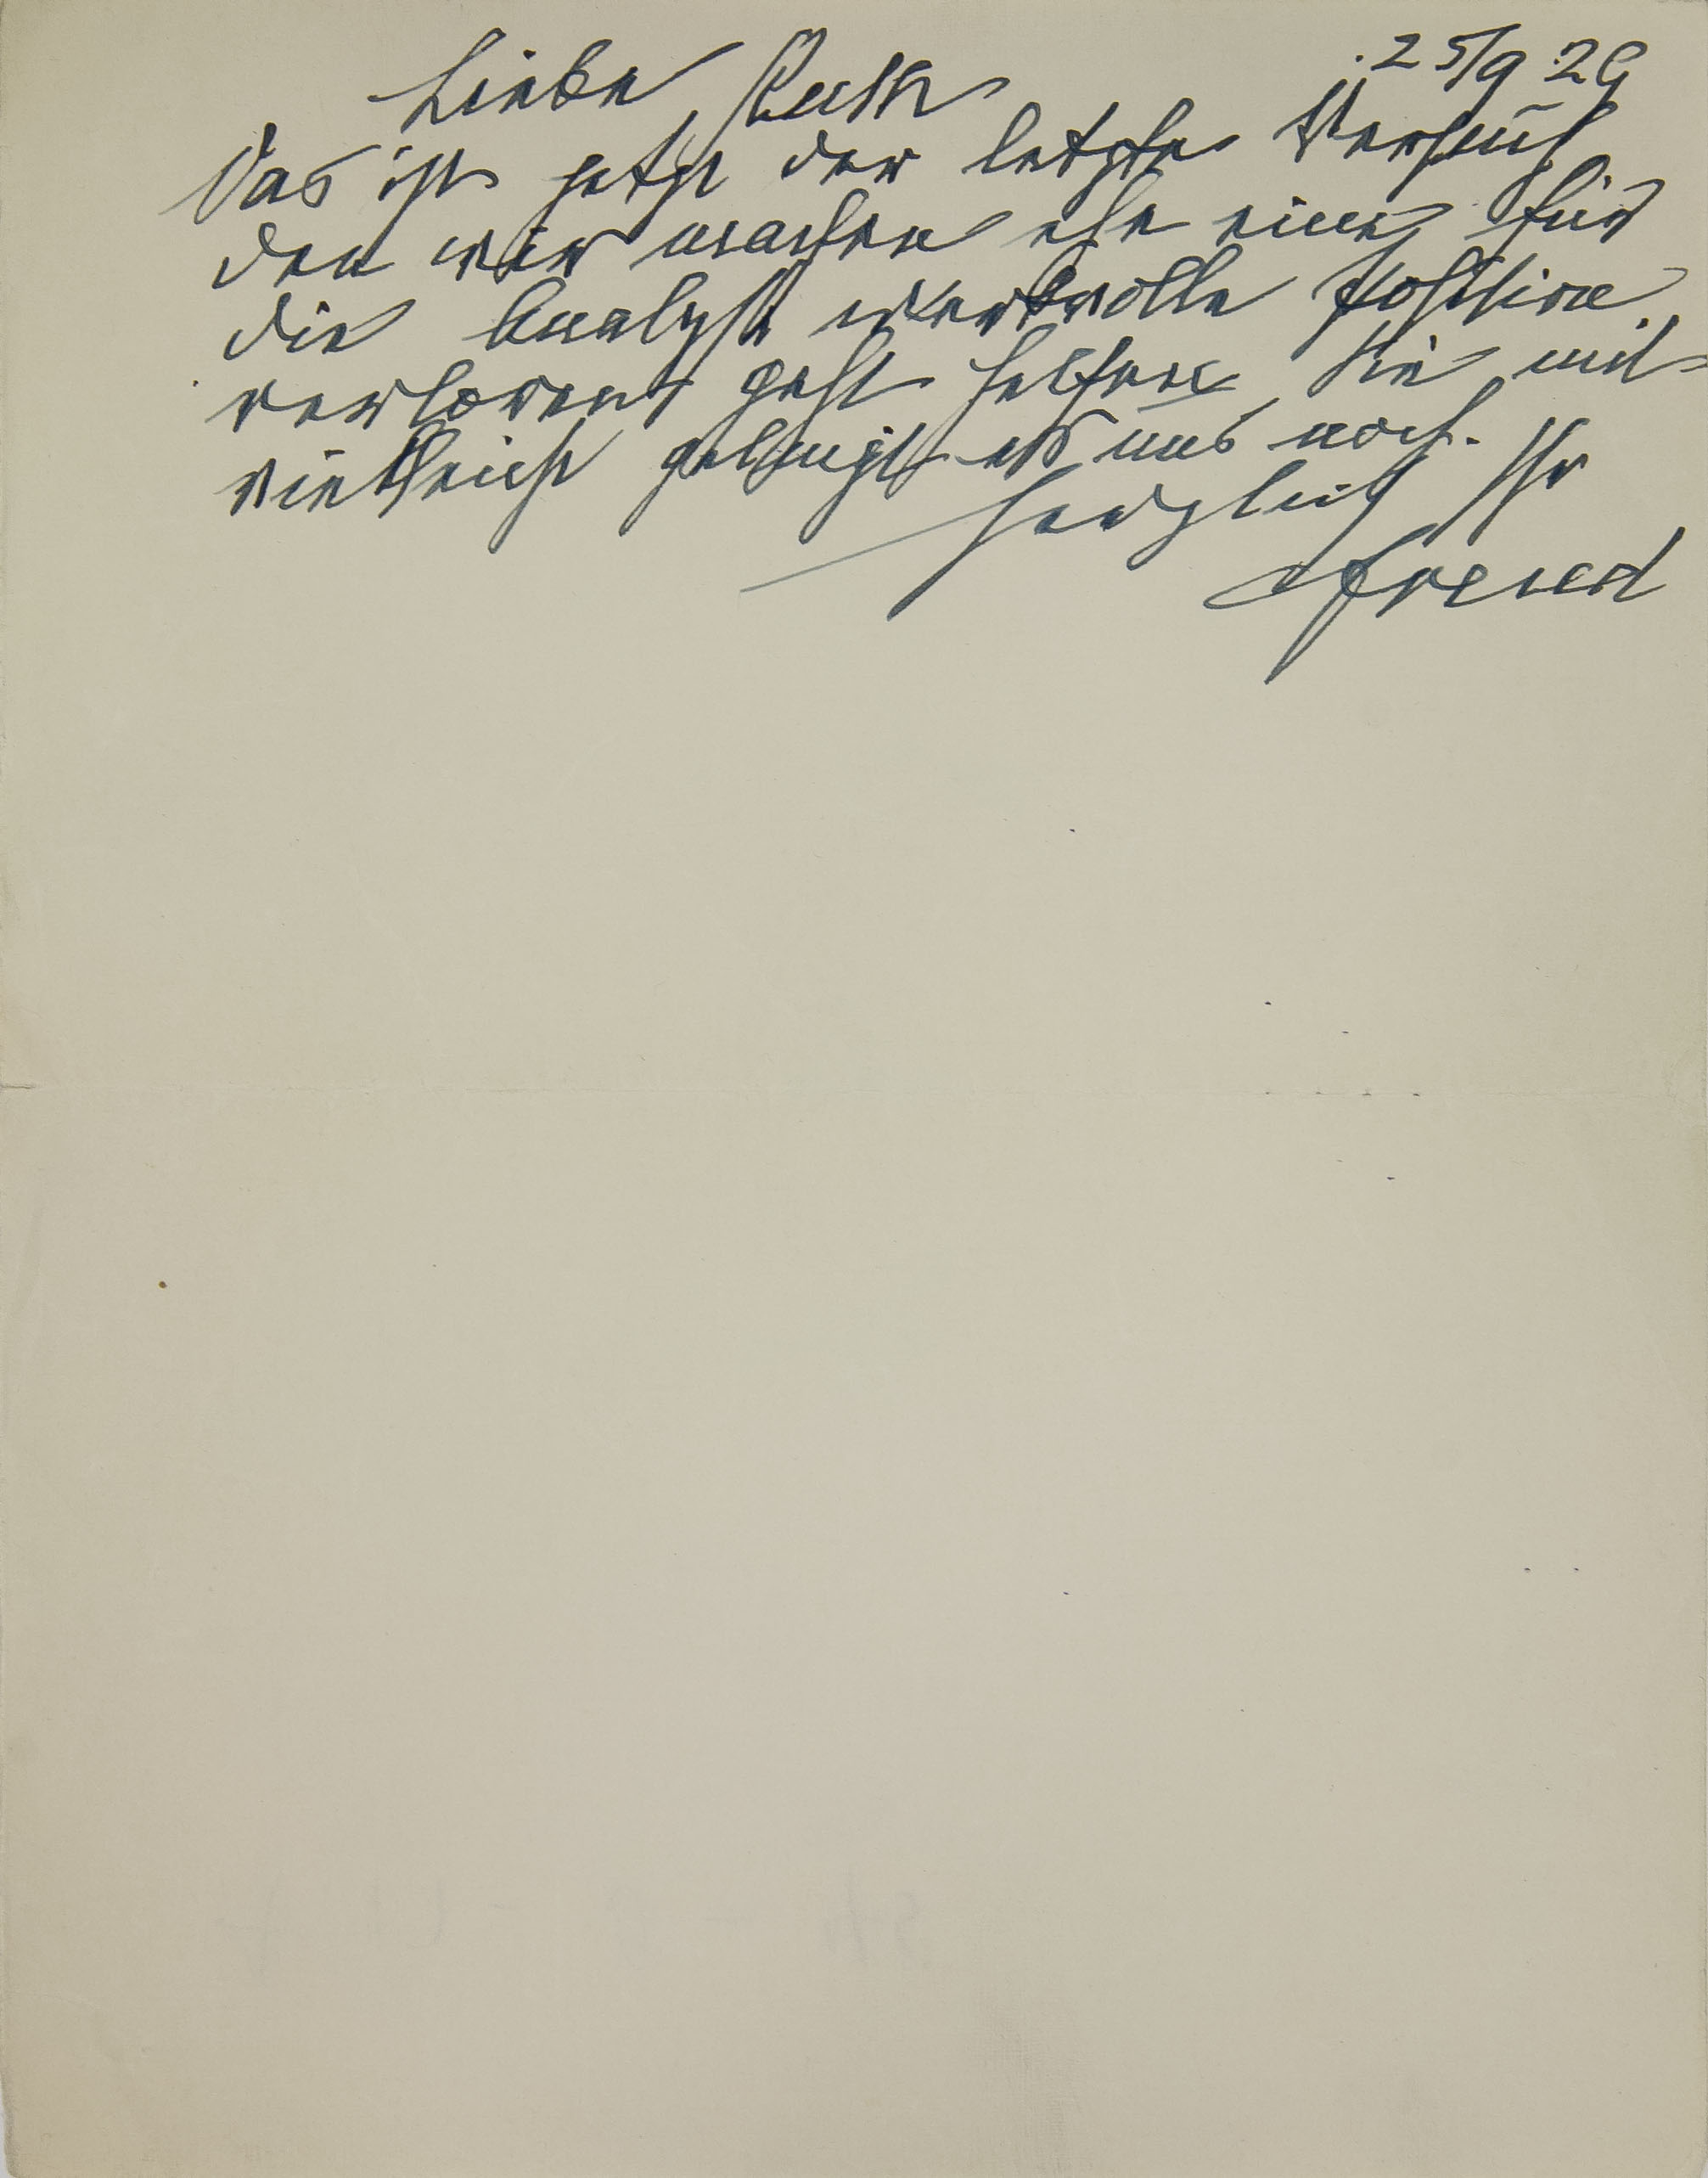 25/9 29
Liebe Ruth
Das ist jetzt der letzte Versuch
den wir machen ehe eine für
die Analyse wertvolle Position
verloren geht helfen Sie mit
vielleicht gelingt es uns noch.
herzlich Ihr
Freud